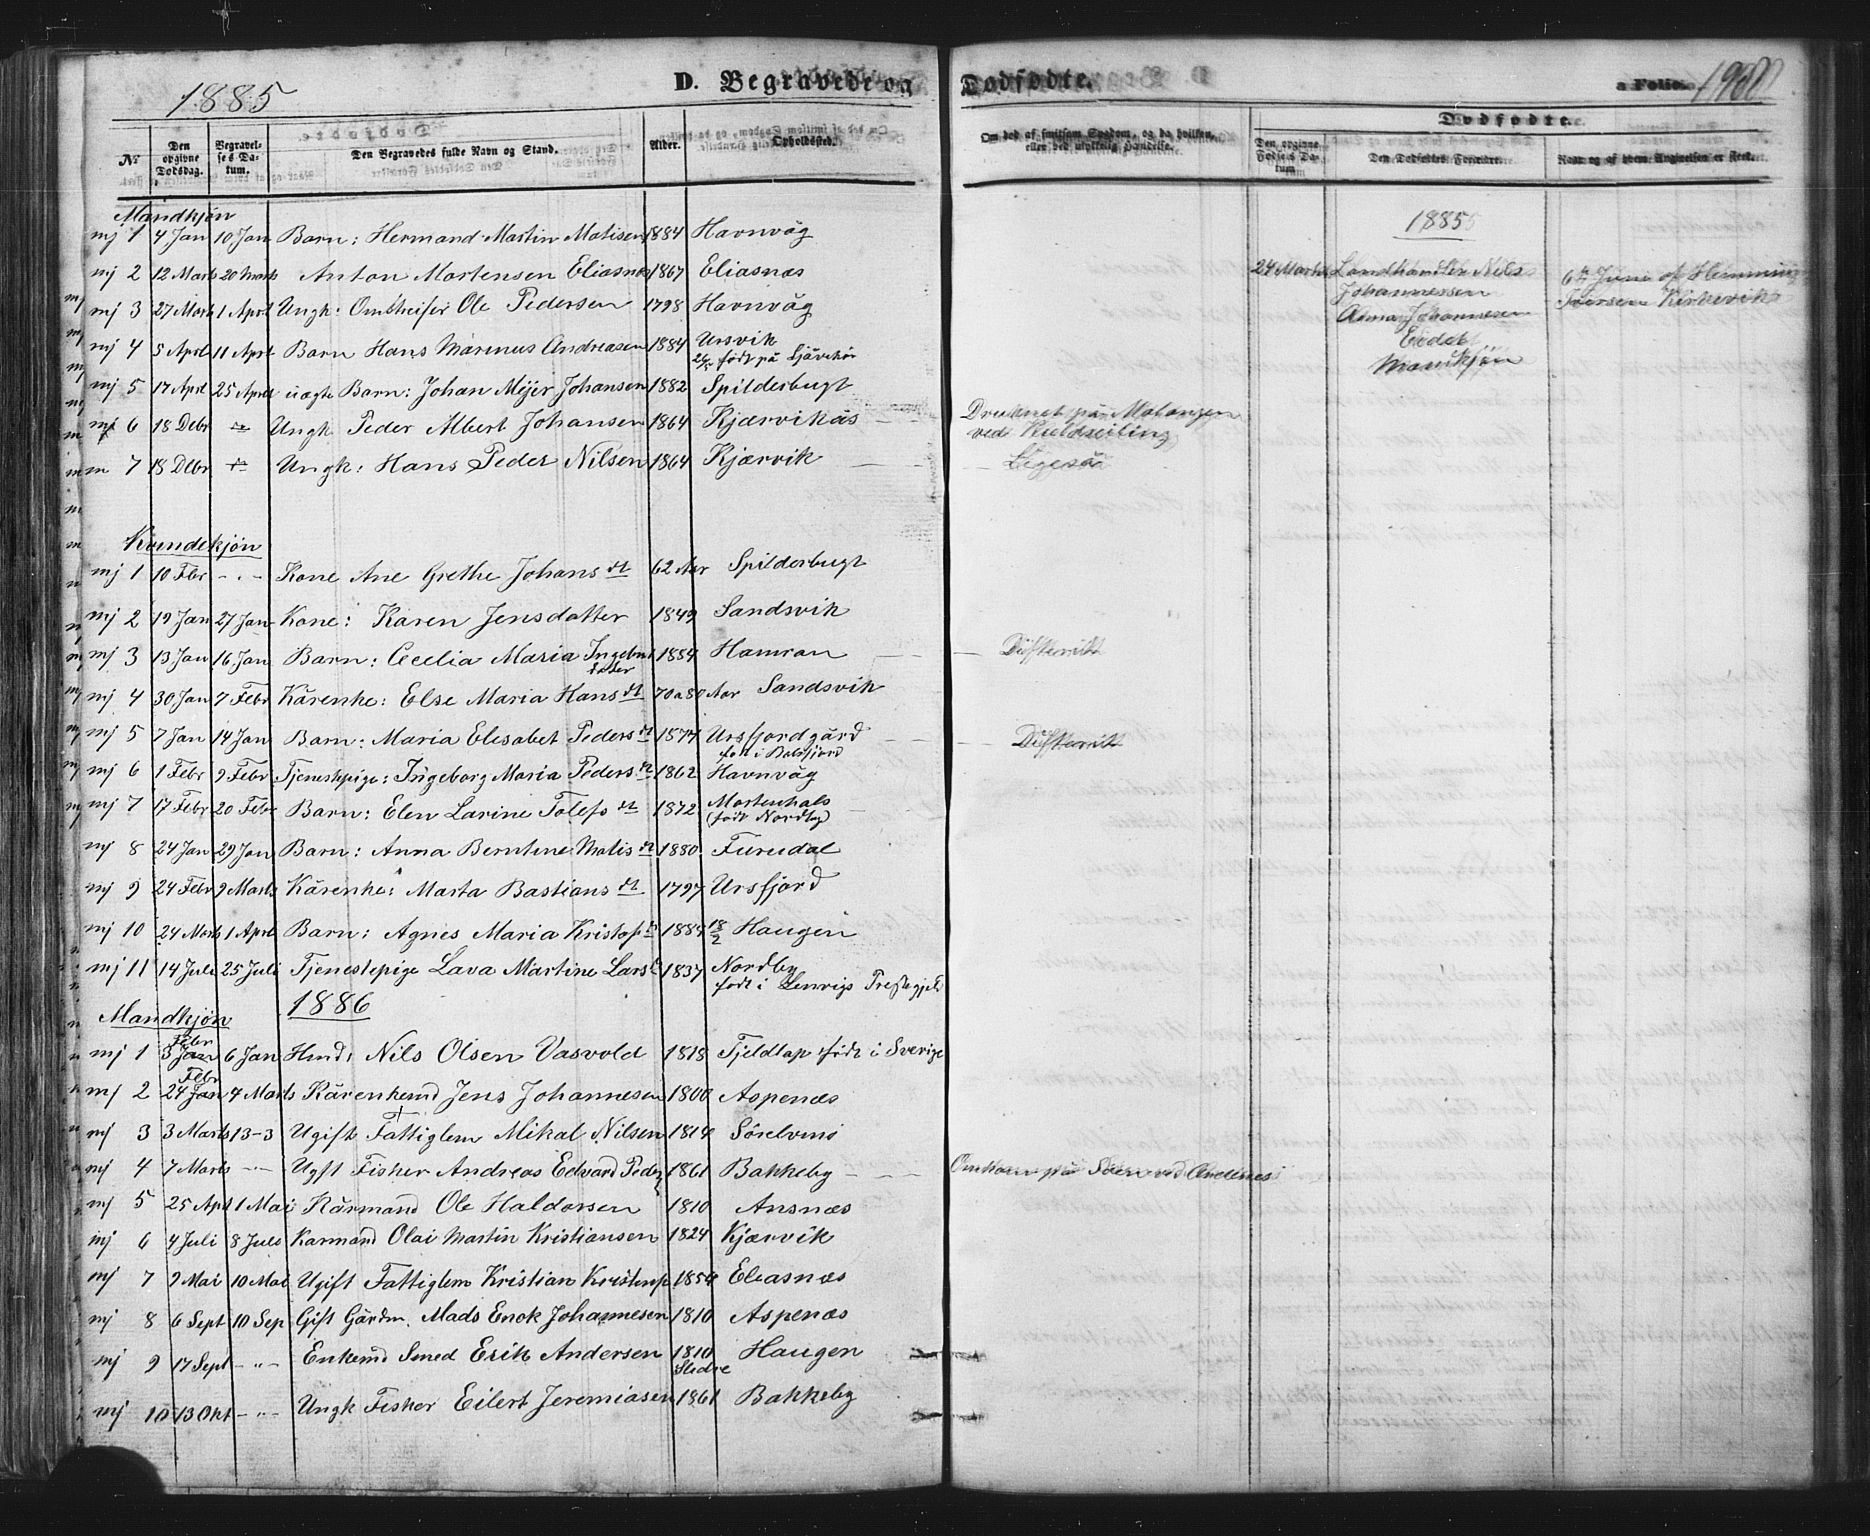 1885
D. Begravede og Dødfødte.
a Folio 190
Nr.
Den opgivne Dødsdag.
Begravelses Datum.
Den Begravedes fulde Navn og Stand.
Alder.
Opholdssted.
Om død af smitsom Sygdom, og da hvilken, eller ved ulykkelig Hændelse.
Dødfødte.
Den opgivne Fødsels Datum
Den Dødfødtes Forældre.
Naar og af hvem Angivelsen er skeet.
Mandkjøn
mj 1 4 Jan 10 Jan Barn: Hermand Martin Matisen 1884 Havnvåg
mj 2 12 Marts 20 Marts Anton Mortensen Eliasnæs 1867 Eliasnæs
mj 3 27 Marts 1 April Ungk: Omstreifer Ole Pedersen 1798 Havnvåg
mj 4 5 Aprl 11 Aprl Barn Hans Marinus Andreasen 1884 Ursvik
født på
mj 5 17 Aprl 25 Aprl uægte Barn: Johan Mejer Johansen 1882 Spilderbugt
mj 6 18 Debr Ungk Peder Albert Johansen 1864 Kjærvikås
Druknet på Malangen
ved
m 7 18 Debr Ungk: Hans Peder Nilsen 1864 Kjærvik
Ligeså
1885
24 Marts Nils
Johannessen
Johannesen
Mandkjøn
6te Juni af Hemming
Iversen Kirkevik
Kvindekjøn
mj 1 10 Febr - " - Kone Ane Grethe Johans dt 62 Aar Spilderbugt
mj 2 19 Jan 27 Jan Kone: Karen Jensdatter 1849 Sandsvik
mj 3 13 Jan 16 Jan Barn: Cecelia Maria 1884 Hamran
Difterrit
mj 4 30 Jan 7 Febr Kårenke: Else Maria Hans dt 70 a 80 Aar Sandsvik
mj 5 7 Jan 14 Jan Barn: Maria Elisabet Peders dt 1877 Ursfjordgård
Difterrit
født i Balsfjord
mj 6 1 Febr 9 Febr Tjenestepige: Ingeborg Maria Peders dt 1862 Havnvåg
mj 7 17 Febr 20 Febr Barn: Elen Larine Tolefs dt 1872 Mortenhals
(født Nordby)
mj 8 24 Jan 29 Jan Barn: Anna Berntine Matis dt 1880 Furudal
mj 9 24 Febr 9 Marts Kårenke: Marta Bastians dt 1797 Ursfjord
mj 10 24 Marts 1 Aprl Barn: Agnes Maria Kristofs dt 1884 18/2 Haugen
mj 11 14 Juli 25 Juli Tjenestepige Lava Martine Lars 1837 Nordby
født i Lenvigs Prestegjeld
Mandkjøn 1886
Febr
mj 1 3 Jan 6 Jan Hmd: Nils Olsen Vasvold 1818 Fjeldlap født i Sverige
Febr
mj 2 24 Jan 4 Marts Kårenkemd Jens Johannesen 1800 Aspenæs
mj 3 3 Marts 13-3 Ugift Fattiglem Mikal Nilsen 1814
mj 4 7 Marts - " - Ugft Fisker Andreas Edvard Peders 1861 Bakkeby
Omkom på Søen ved
mj 5 25 Apl 1 Mai Kårmand Ole Haldorsen 1810 Ansnæs
mj 6 4 Juli 8 Juli Karmand Olai Martin Kristiansen 1824 Kjærvik
mj 7 9 Mai 10 Mai Ugift Fattiglem Kristian 1854 Eliasnæs
mj 8 6 Sept 10 Sep Gift Gårdm. Mads Enok Johannesen 1810 Aspenæs
mj 9 17 Sept - " - Enkemd Smed Erik Andersen 1810 Haugen
Slidre
mj 10 13 Okt - " - Ungk Fisker Eilert Jeremiasen 1861 Bakkeby